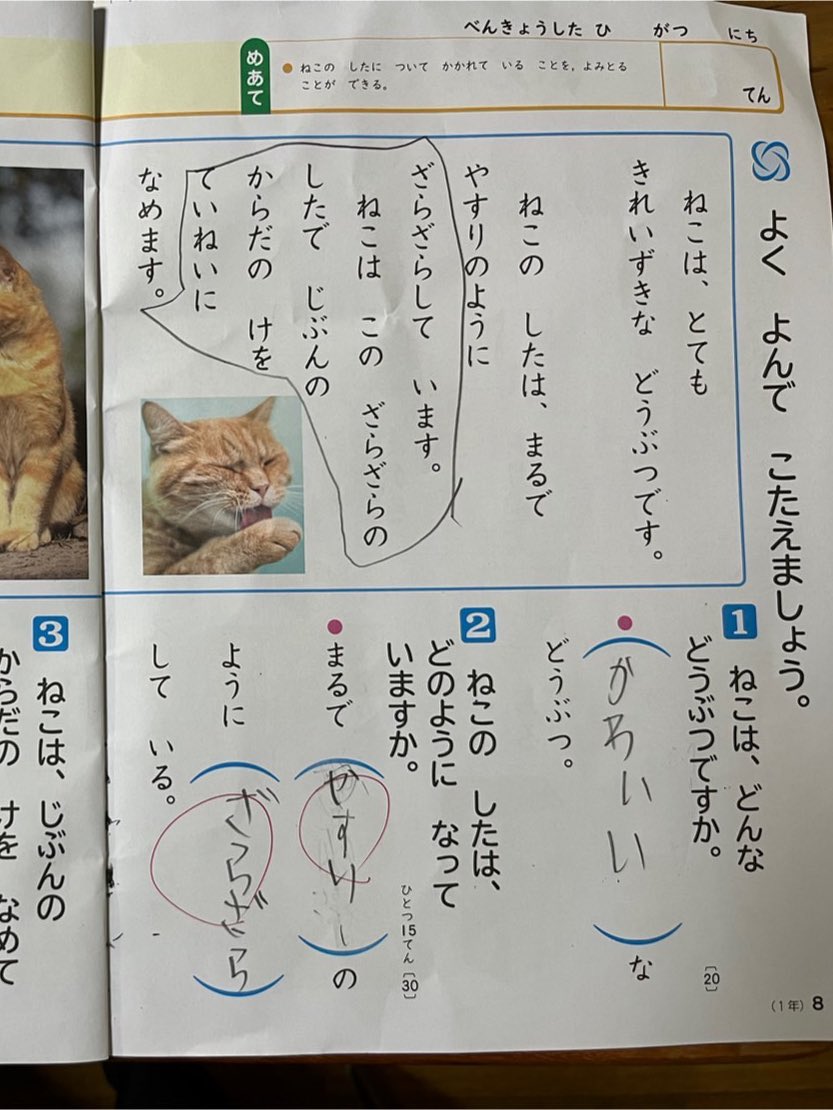 べんきょうした ひ　がつ　にち
めあて
●ねこの したに ついて かかれて いる ことを，よみとる
ことが できる。
てん
よく よんで こたえましょう。
ねこは、とても
きれいずきな どうぶつです。
ねこの したは、まるで
やすりのように
ざらざらして います。
ねこは この ざらざらの
したで じぶんの
からだの けを
ていねいに
なめます。
1 ねこは、どんな
どうぶつですか。
[20]
●(かわいい)な
どうぶつ。
2 ねこの したは、
どのように なって
いますか。
ひとつ15てん[30]
●まるで(やすり)の
ように(ざらざら)
して いる。
3 ねこは、じぶんの
からだの けを なめて
(1年) 8